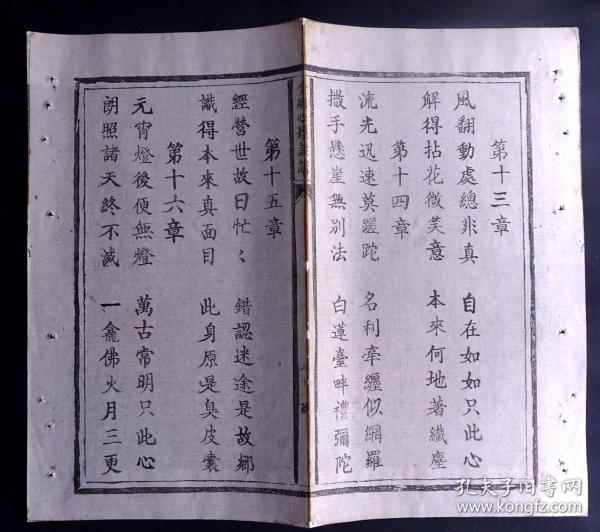 第十三章
風翻動處總非真 自在如如只此心
解得拈花微笑意 本來何地著纖塵
第十四章
流光迅速莫蹉跎 名利牽纏似網羅
撒手懸崖無別法 白蓮臺畔禮彌陀
第十五章
經營世故日忙〻 錯認迷途是故鄉
識得本來真面目 此身原是臭皮囊
第十六章
元宵燈後便無燈 萬古常明只此心
朗照諸天終不滅 一龕佛火月三更
孔夫子旧书网